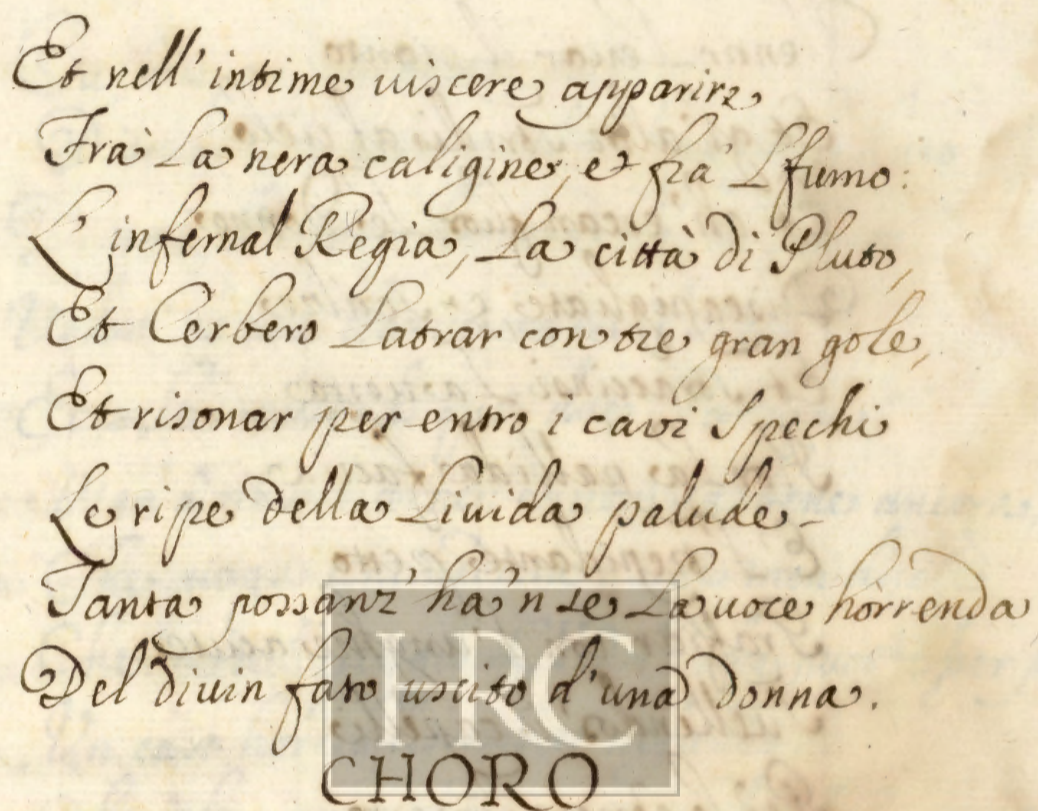 Et nell' intime viscere apparire
Frà la nera caligine, e frà l fumo:
L' infernal Regia, la città di Pluto,
Et Cerbero latrar con tre gran gole,
Et risonar per entro i cavi Spechi
Le ripe della livida palude
Tanta possanz' ha' n se la voce horrenda
Del divin fato uscito d' una donna.
CHORO
HRC